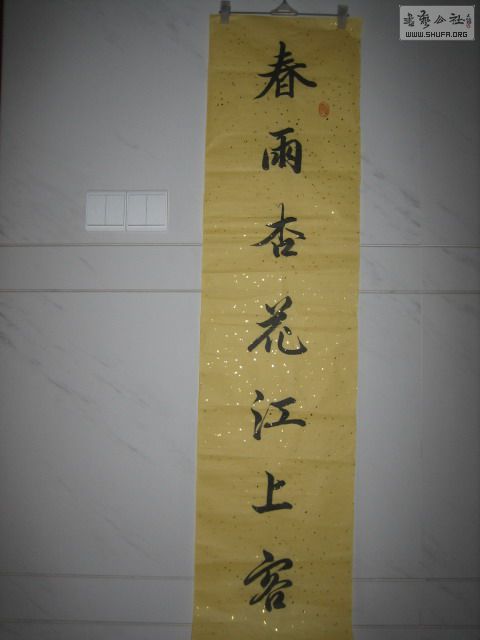 春雨杏花江上客
書藝公社
WWW.SHUFA.ORG